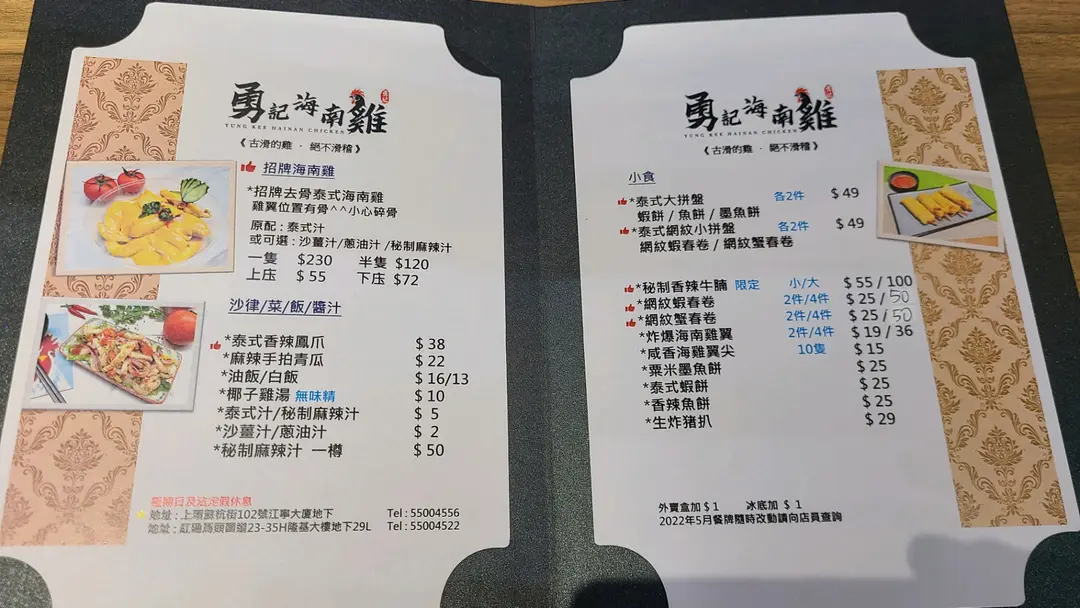 勇記海南雞
YUNG KEE HAINAN CHICKEN
《 古滑的雞 ． 絕不滑稽 》
招牌海南雞
*招牌去骨泰式海南雞
雞翼位置有骨^^小心碎骨
原配 : 泰式汁
或可選 : 沙薑汁/蔥油汁 /秘制麻辣汁
一隻 $230 半隻 $120
上庄 $ 55 下庄 $72
沙律/菜/飯/醬汁
*泰式香辣鳳爪 $ 38
*麻辣手拍青瓜 $ 22
*油飯/白飯 $ 16/13
*椰子雞湯 無味精 $ 10
*泰式汁/秘制麻辣汁 $ 5
*沙薑汁/蔥油汁 $ 2
*秘制麻辣汁 一樽 $ 50
日及法定假休息
地址 : 上環蘇杭街102號江寧大廈地下 Tel : 55004556
地址 : 紅磡馬頭圍道23-35H隆基大樓地下29L Tel : 55004522
勇記海南雞
YUNG KEE HAINAN CHICKEN
《 古滑的雞 ． 絕不滑稽 》
小食
*泰式大拼盤 各2件 $ 49
蝦餅 / 魚餅 / 墨魚餅
*泰式網紋小拼盤 各2件 $ 49
網紋蝦春卷 / 網紋蟹春卷
*秘制香辣牛腩 限定 小/大 $ 55 / 100
*網紋蝦春卷 2件/4件 $ 25 / 50
*網紋蟹春卷 2件/4件 $ 25 / 50
*炸爆海南雞翼 2件/4件 $ 19 / 36
*咸香海雞翼尖 10隻 $ 15
*粟米墨魚餅 $ 25
*泰式蝦餅 $ 25
*香辣魚餅 $ 25
*生炸猪扒 $ 29
外賣盒加 $ 1 冰底加 $ 1
2022年5月餐牌隨時改動請向店員查詢